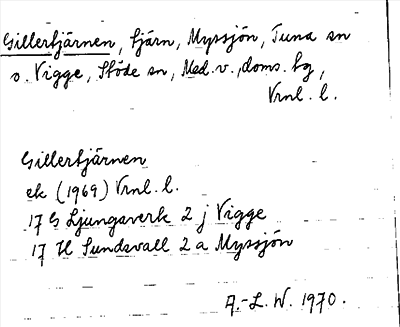 Gillertjärnen, tjärn, Myssjön, Tuna sn
o. Vigge, Stöde sn, Med. v., doms. tg,
Vrnl. l.
Gillertjärnen
ek (1969) Vrnl. l.
17 G Ljungaverk 2 j Vigge
17 H Sundsvall 2 a Myssjön
A.-L. W. 1970.